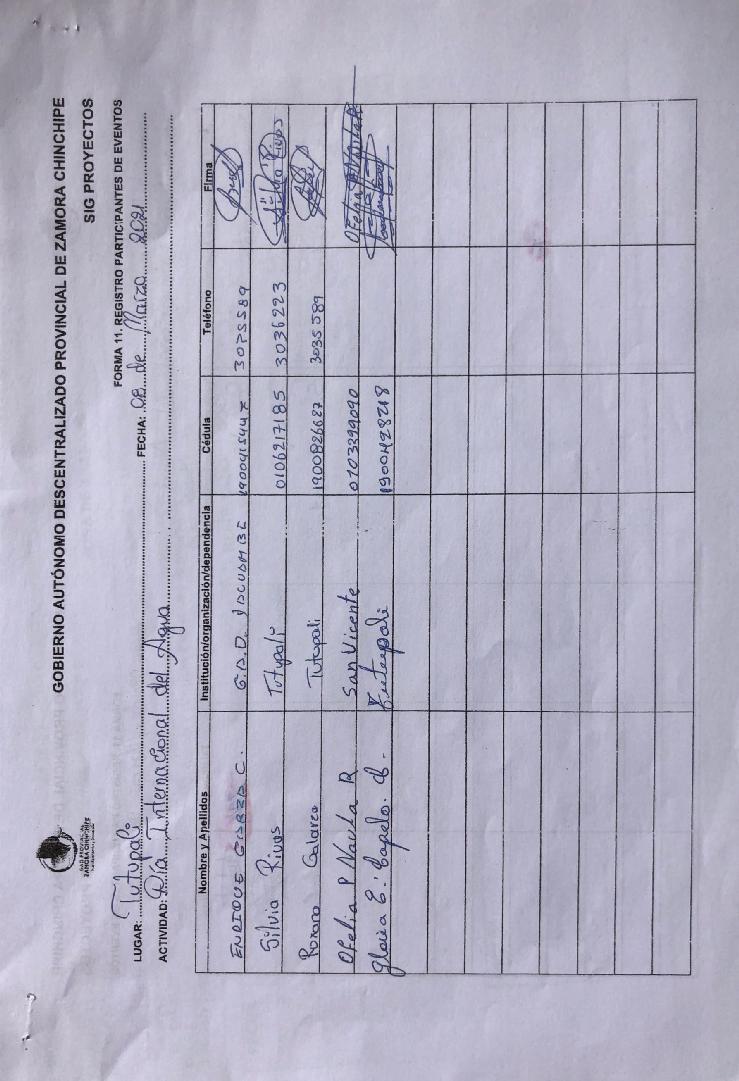 GOBIERNO AUTÓNOMO DESCENTRALIZADO PROVINCIAL DE ZAMORA CHINCHIPE
SIG PROYECTOS
FORMA 11. REGISTRO PARTICIPANTES DE EVENTOS
LUGAR: Tutupali FECHA: 08 de Marzo 2021
ACTIVIDAD: Día Internacional del Agua
Nombre y Apellidos Institución/organización/dependencia Cédula Teléfono Firma
ENRIQUE C. G.A.D. 3075589
Silvia Rivas Tutupali 0106217185 3036223 Silvia Rivas
Tutupali 1900826687 3035589
Ofelia P Nauta R San Vicente 0103399090 Ofelia
Gloria E. Capelo. Tutupali 1900428218